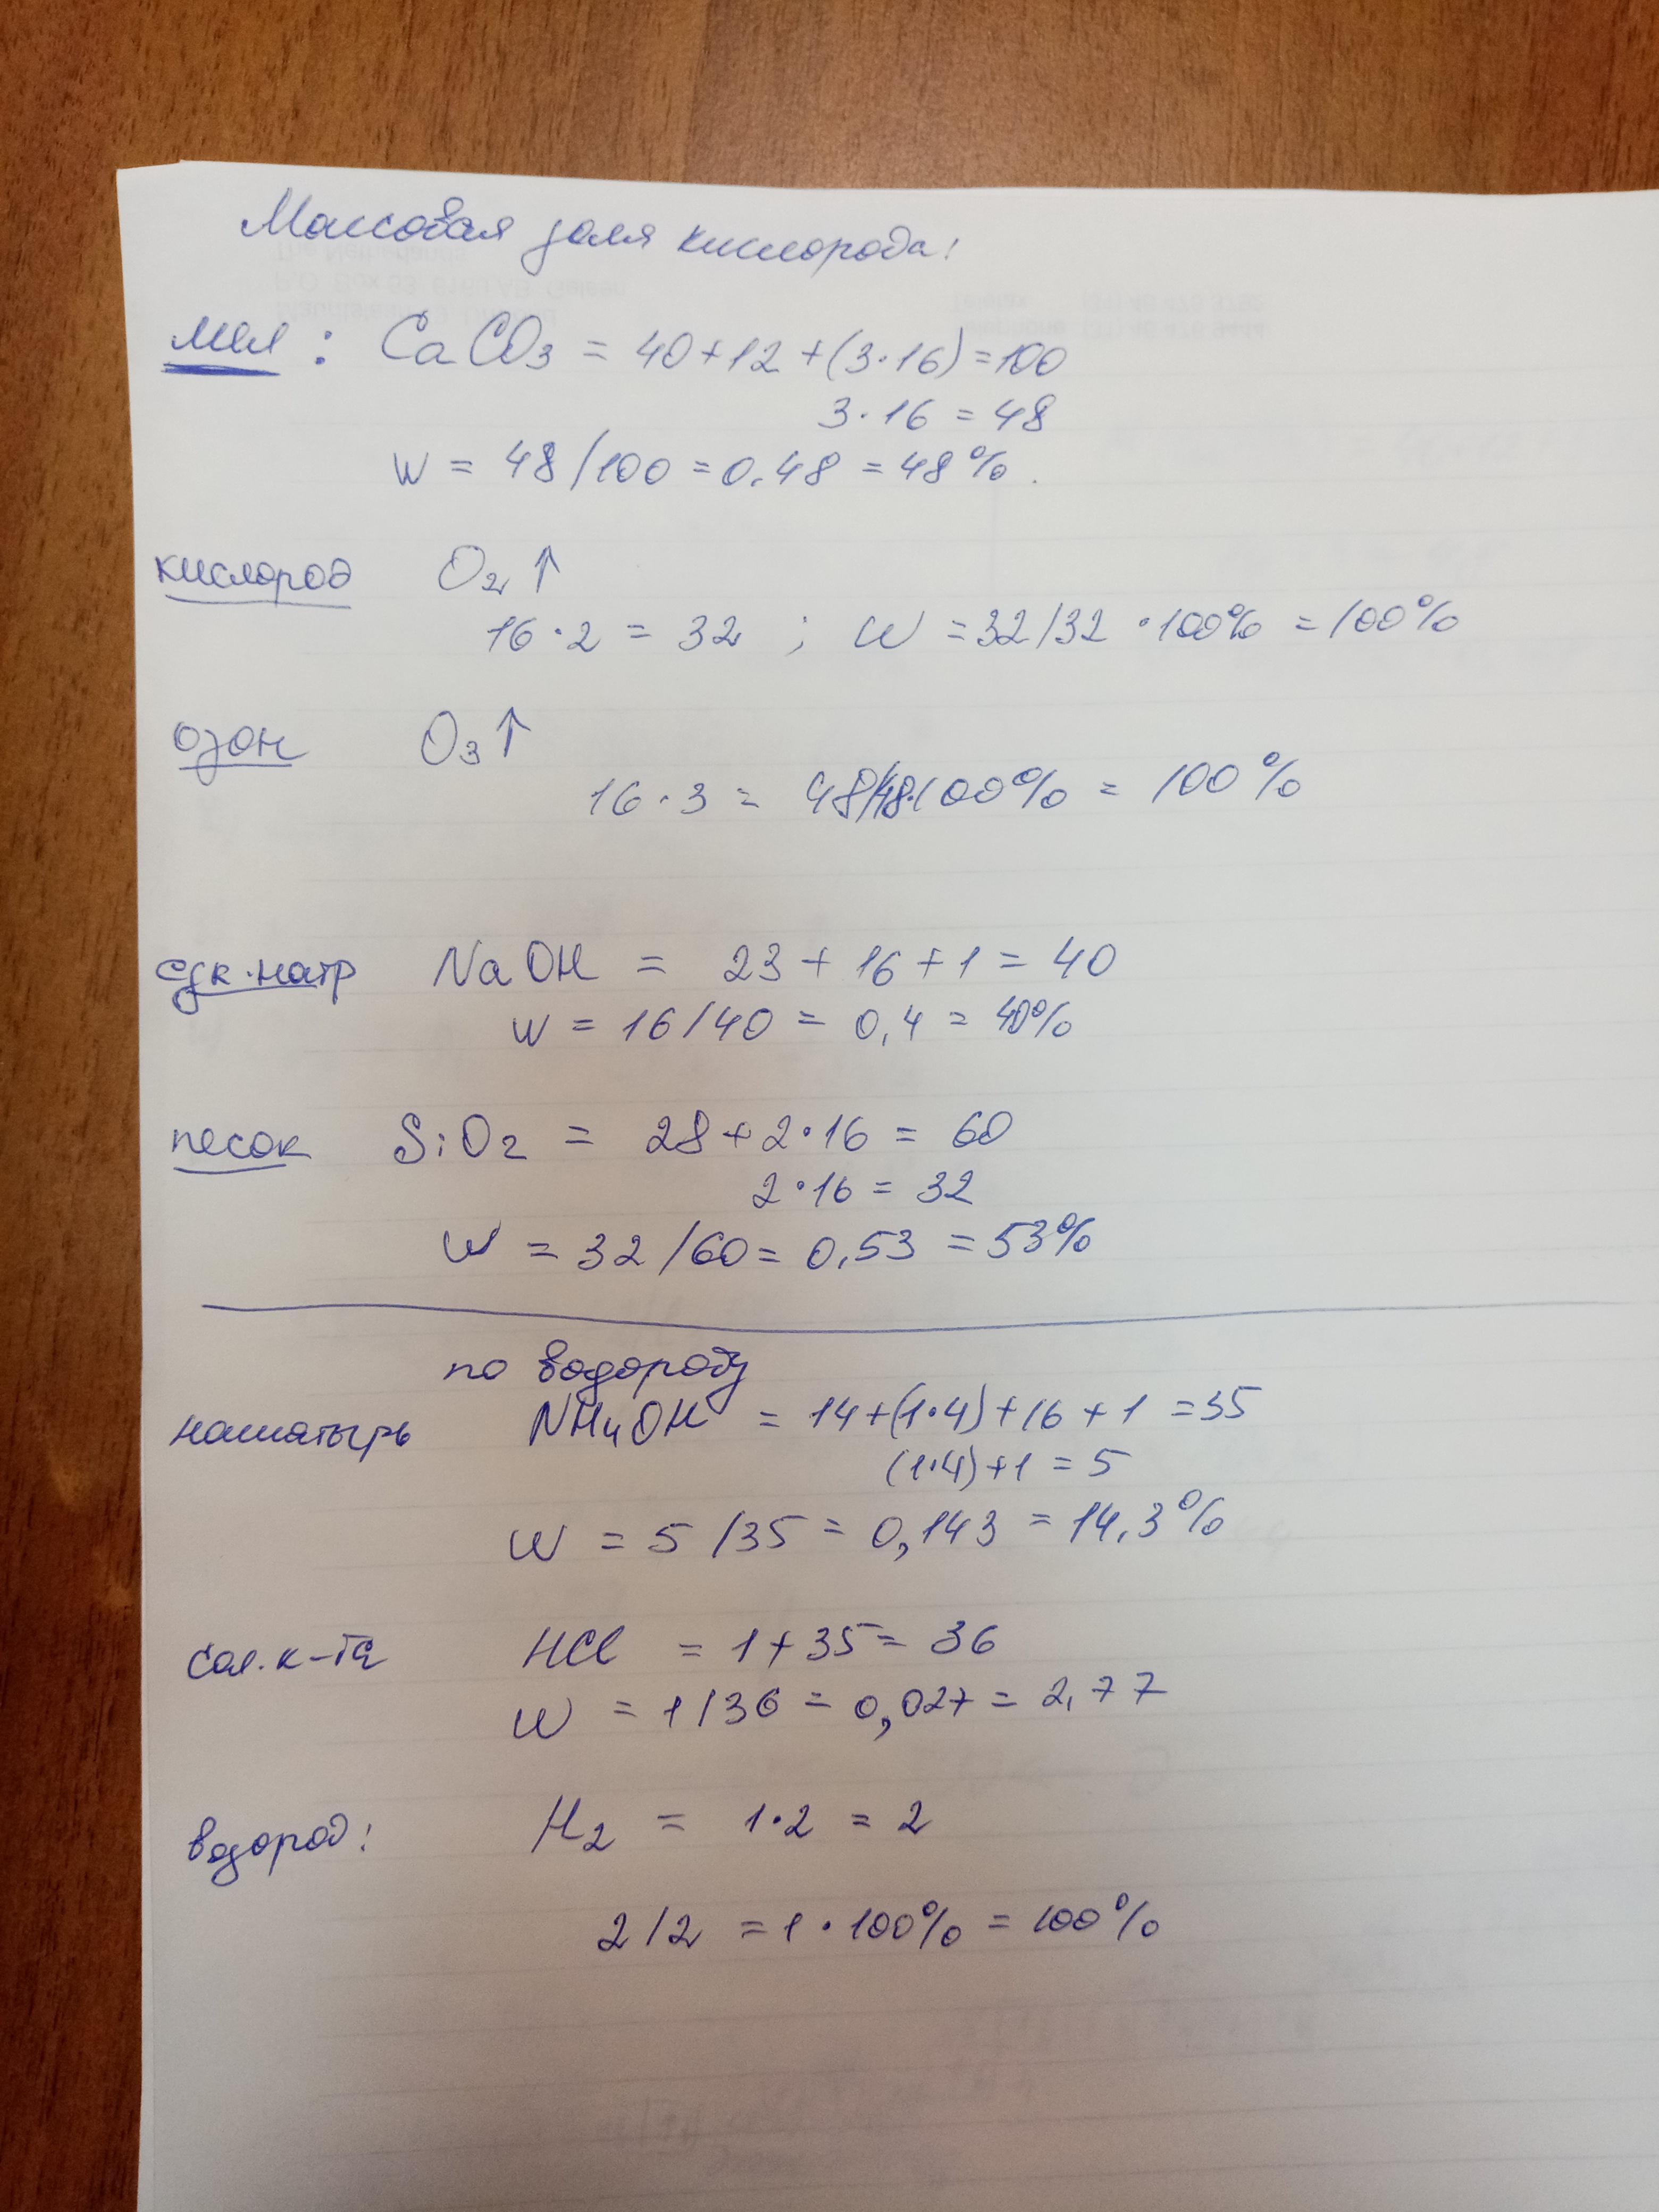 Массовая доля кислорода:
мел: CaCO₃ = 40+12+(3·16)=100
3·16 = 48
W = 48/100 = 0.48 = 48%.
кислород O₂↑
16·2 = 32 ; W = 32/32 · 100% = 100%
озон O₃↑
16·3 = 48/48·100% = 100%
едк·натр NaOH = 23 + 16 + 1 = 40
W = 16/40 = 0,4 = 40%
песок SiO₂ = 28+2·16 = 60
2·16 = 32
W = 32/60 = 0.53 = 53%
по водороду
нашатырь NH₄OH = 14+(1·4)+16+1 =35
(1·4)+1 = 5
W = 5/35 = 0,143 = 14.3%
сол. к-та HCl = 1+35 = 36
W = 1/36 = 0,027 = 2,77
водород: H₂ = 1·2 = 2
2/2 = 1·100% = 100%